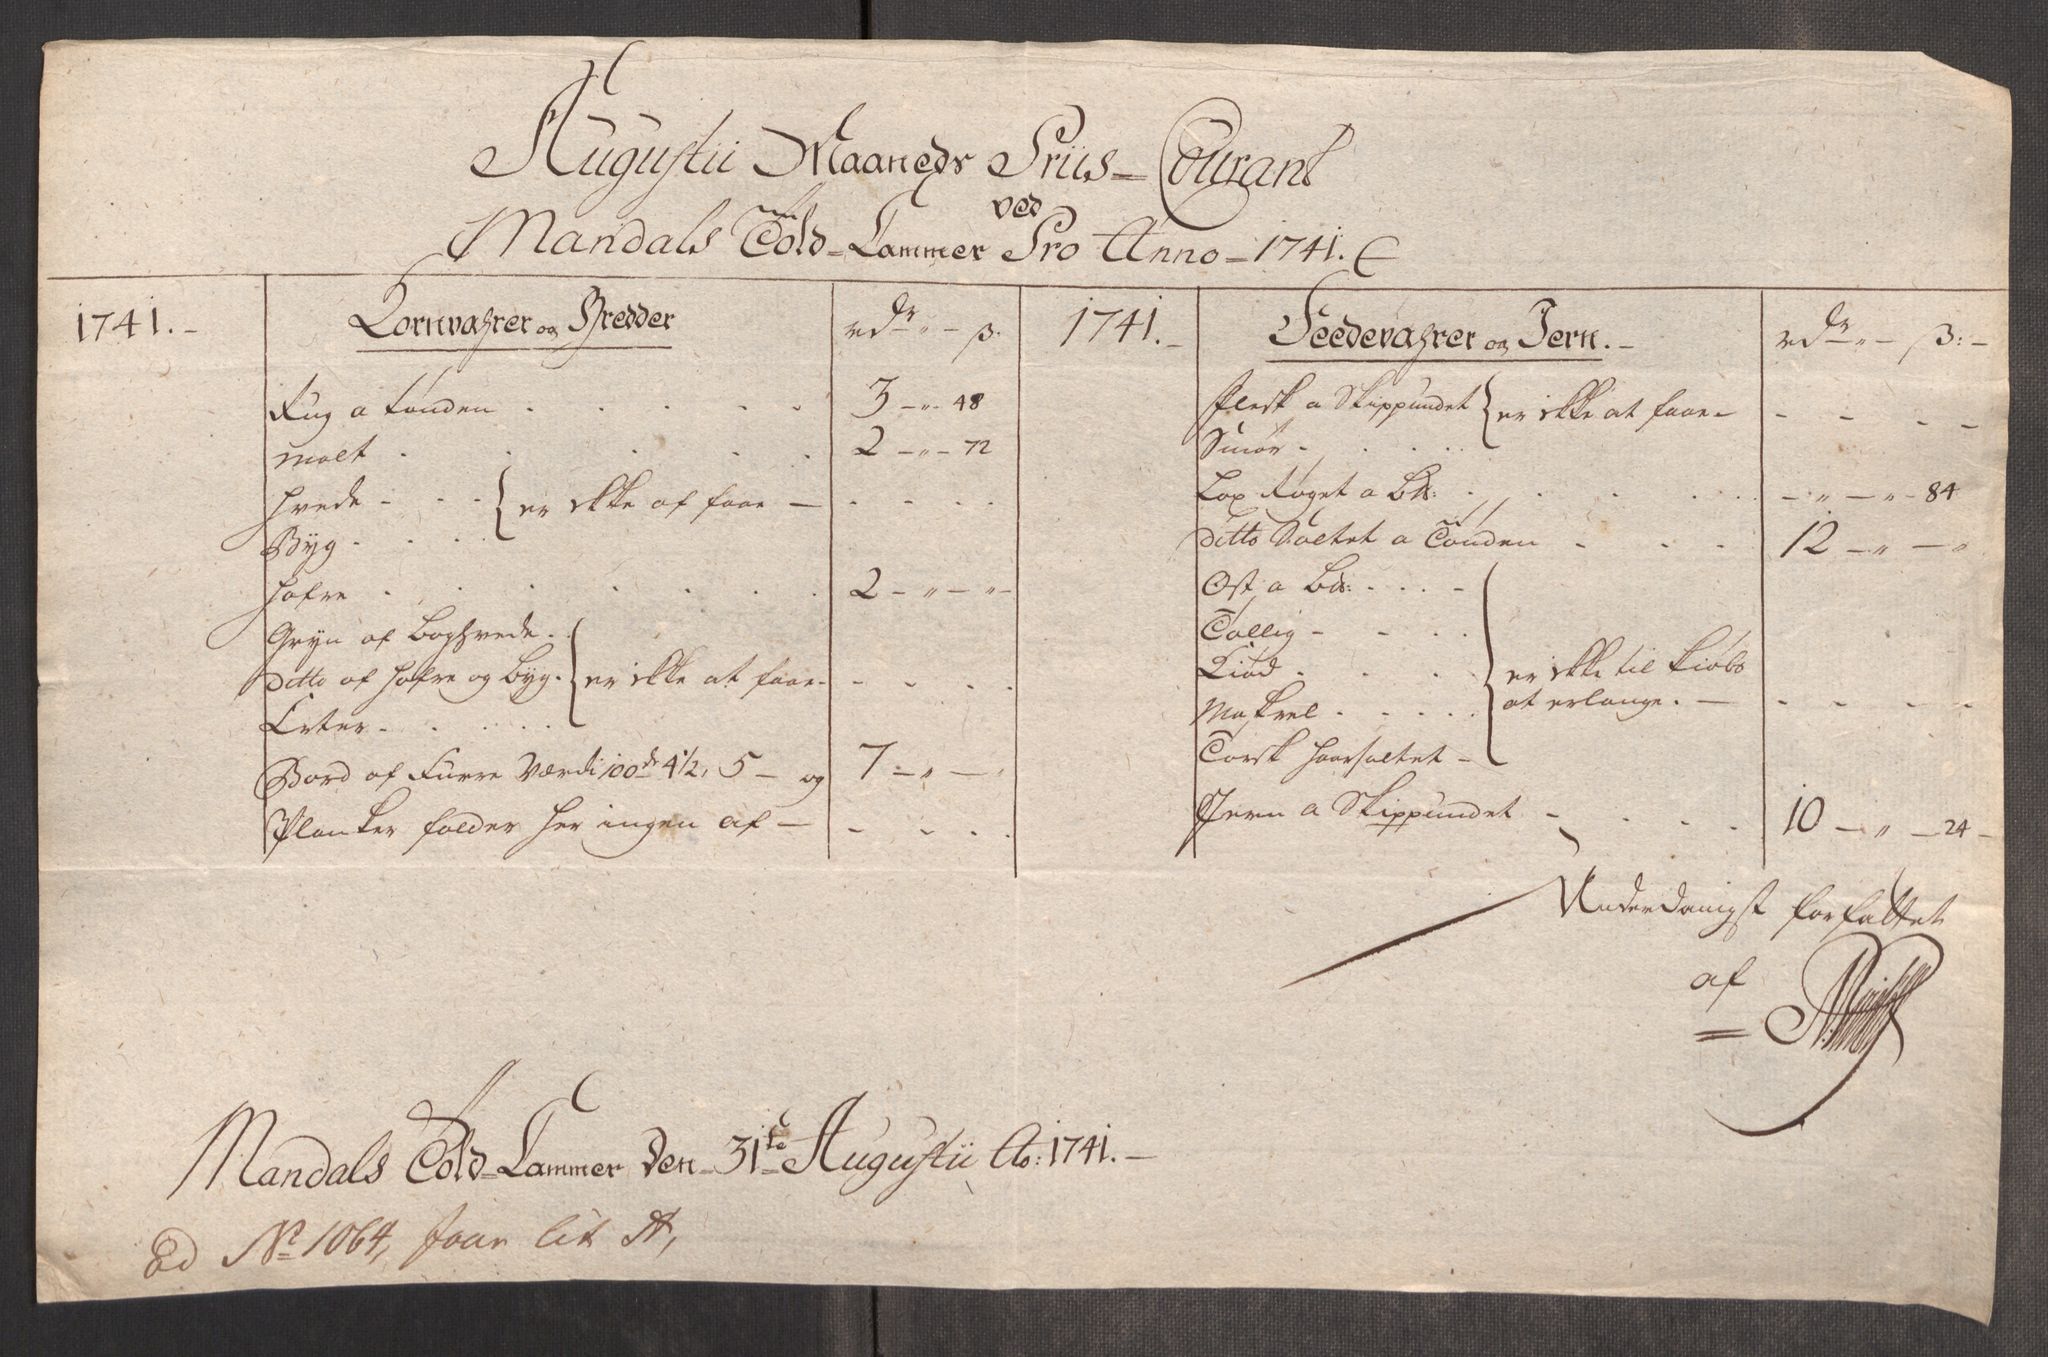 Augustii Maaneds Priis-Courant
ved
Mandals Told-Cammer Pro Anno-1741.
1741.- Kornvahrer og Bredder rdr - ß.
Rug a tønden . . . . . 3 -"- 48
malt . . . . . 2 -"- 72
Hvede - - - er ikke at faae - - - - -
Byg . . . .
Hafre . . . . . . 2 -"- "-
Gryn af Boghvede . .
Ditto af Hafre og Byg . er ikke at faae - - - - .
Erter . . . . .
Bord af Furre Værdi 100de 4 1/2, 5 - og 7 -"- "
Planker falder her ingen af - - - . .
1741.- Feedevahrer og Jern.- rdr - ß:-
Flesk a Skippundet er ikke at faae - - - . -
Smør . . . . .
Lax Røget a Lb: . . . . . -"-"- 84
Ditto Saltet a Tønden . . . 12 -"- "
Ost a Lb: . . . -
Tallig - - . .
Kiød . . . . er ikke til kiøbs
Makrel . . . . . at erlange. - - - . .
Torsk Haarsaltet -
Jern a Skippundet - . . . . 10 -"- 24 -
Underdanigst forfattet
af
Mandals Told-Cammer Den 31te Augustii Ao: 1741.-
Ad No 1064, faar lit A,